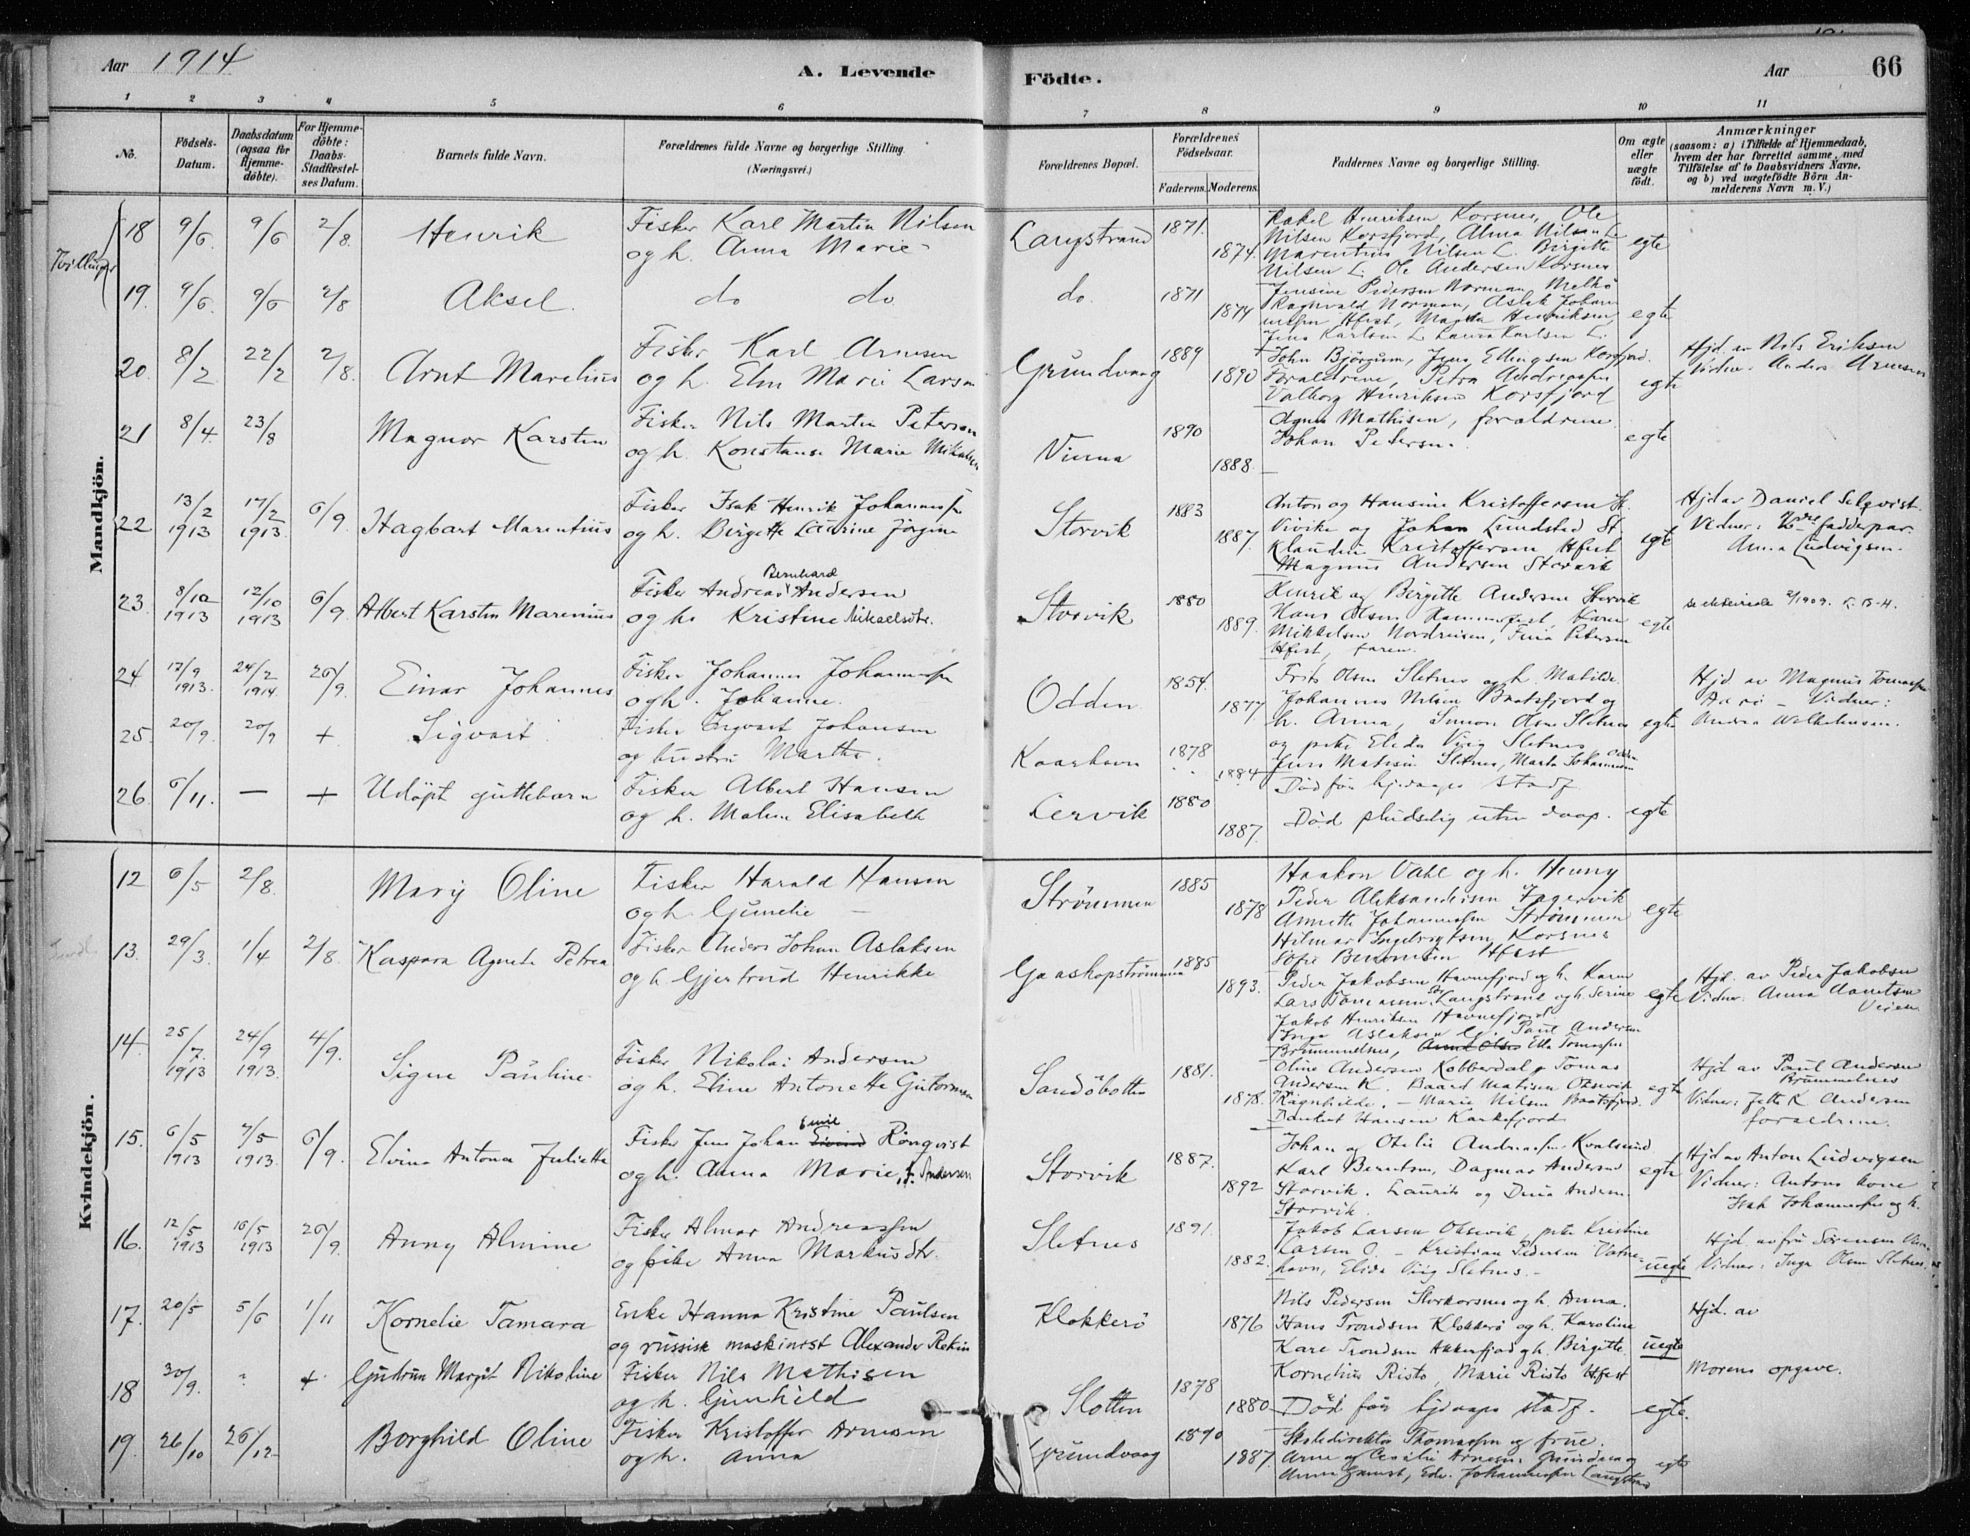 Aar 1914
A. Levende
Födte.
Aar
66
1 2 3 4 5 6 7 8 9 10 11
No.
Födsels-Datum.
Daabsdatum (ogsaa for Hjemme-döbte).
For Hjemme-döbte: Daabs-Stadfæstel-ses Datum.
Barnets fulde Navn.
Forældrenes fulde Navne og borgerlige Stilling. (Næringsvei.)
Forældrenes Bopæl.
Forældrenes Födselsaar.
Faderens. Moderens.
Faddernes Navne og borgerlige Stilling.
Om ægte eller uægte födt.
Anmærkninger
(saasom: a) i Tilfælde af Hjemmedaab,
hvem der har forrettet samme, med
Tilföielse af to Daabsvidners Navne.
og b) ved uægtefödte Börn An-
melderens Navn m. V.)
Mandkjön.
Tvillinger
18 9/6. 9/6 2/8. Henrik
Fisker Karl Martin Nilsen
og h. Anna Marie
Langstrand 1871. 1874.
Rakel Henriksen Korsnes, Ole
Nilsen Korsfjord, Alma Nilsen L.
Marentius Nilsen L. Birgitte
Nilsen L. Ole Andersen Korsnes
egte
19. 9/6. 9/6 2/8 Aksel. do do
do. 1871 1874
Jensine Pedersen Norman Melkö
Ragnvald Norman, Aslak Johan-
nessen Hfest, Magda Henriksen,
Jens Karlsen L. Laura Karlsen L.
egte
20. 8/2 22/2 2/8. Arnt Marelius
Fisker Karl Arnesen
og h. Elen Marie Larsen
Grundvaag 1889 1890
John Björgum, Jens Ellingsen Korsfjord.
Foraldrene, Petra Andreassen
Valborg Henriksen Korsfjord
egte
Hjd. av Nils Eriksen
Vidner: Anders Arnesen
21 8/4 23/8 Magnor Karsten
Fisker Nils Martin Petersen
og h. Konstanse Marie Mikalsen
1890 1888
Agnes Mathisen, foraldrene
Johan Petersen.
egte
22 13/2 1913 17/2 1913. 6/9. Hagbart Marentius
Fisker Isak Henrik Johannessen
og h. Birgitte Laurine Jörgine
Storvik 1883 1887.
Anton og Hansine Kristoffersen St.
Vivike og Johan Lundsted St.
Klaudine Kristoffersen Hfest
Magnus Andersen Storvik
egte
Hjd av Daniel Selqvist.
Vidner: fadderpar.
Anna Ludvigsen.
23. 8/10 1913 12/10 1913 6/9. Albert Karsten Marenius
Fisker Andreas Bernhard Andersen
og h. Kristine Mikaelsdtr.
Storvik 1880 1889.
Henrik og Birgitte Andersen Storvik
Hans Olsen Hammerfest, Karen
Mikkelsen Nordreisen, Petersen
Hfest, faren.
egte
24 17/9 1913. 24/2 1914. 26/9. Einar Johannes
Fisker Johannes Johannessen
og h. Johanne.
Odden 1854. 1877
Frits Olsen Sletnes og h. Matilde
Johannes Nilsen Baatsfjord og
h. Anna, Simon Olsen Sletnes
og pike Elida Viig Sletnes
egte
Hjd av Magnus Tomassen
Vidner:
Andrea Wilhelmsen.
25. 20/9. 20/9 + Sigvart
Fisker Ingvart Johansen
og hustru Marthe.
Kaarhavn 1878 1884
Jens Matisen Sletnes, Marta Johannessen Odden
Död för hjdaaps stadf
26. 6/11. — + Udöpt guttebarn
Fisker Albert Hansen
og h. Malene Elisabeth
Lervik 1880 1887.
Död pludselig uten daap. egte
Kvindekjön.
12 6/5 2/8. Mary Oline
Fisker Harald Hansen
og h. Gunelie
Strömmen 1885 1878
Haakon Vahl og h. Henny
Peder Aleksandersen Fagervik
Annette Johannessen Strömmen
Hilmar Ingebrigtsen Korsnes
Sofie Hfest
egte
13. 29/3. 1/4 2/8. Kaspara Agnete Petrea
Fisker Anders Johan Aslaksen
og h. Gjertrud Henrikke
Gaashopströmmen 1885 1893.
Peder Jakobsen Havnefjord og h. Karen
Lars Langstrand og h. Serine
Jakob Henriksen Havnefjord
Inga Aslaksen G. Paul Andersen
egte
Hjd. av Peder Jakobsen
Vidner: Anna
14. 25/7 1913 24/9 1913. 4/9. Signe Pauline
Fisker Nikolai Andersen
og h. Eline Antonette Gutormsen
Sandöbotten 1881. 1878.
Brummelnes, Ella Tomassen
Oline Andersen Kobberdal, Tomas
Andersen K. Baard Matisen Oksevik
Ragnhilde. — Marie Nilsen Baatsfjord.
Hansen Karkefjord
egte
Hjd av Paul Andersen
Brummelnes
Vidner: Andersen
foraldrene.
15. 6/5 1913 7/5 1913. 6/9. Elvine Antona Juliette
Fisker Jens Johan Emil Eivind Rönqvist
og h. Anna Marie, f. Andersen
Storvik 1887. 1892
Johan og Otelie Andreassen Kvalsund
Karl Berntsen, Dagmar Andersen
Storvik. Laurits og Andersen
Storvik.
egte
Hjd av Anton Ludvigsen.
Vidner: Antons kone
Isak Johannessen og h.
16. 12/5 1913 16/5 1913 26/9. Anny Almine
Fisker Almar Andreassen
og pike Anna Markusdtr.
Sletnes 1891. 1882.
Jakob Larsen Oksevik, pike Kristine
Larsen O. — Kristian Pedersen Vatne-
havn, Elida Viig Sletnes. —
uegte
Hjd. av fru Sörensen
Vidner: Inga Olsen Sletnes.
17. 20/5 5/6 1/11 Kornelie Tamara
Enke Hanna Kristine Paulsen
og russisk maskinist Alexander Rekin
Klokkerö 1876
Nils Pedersen Storkorsnes og h. Anna.
Hans Trondsen Klokkerö og h. Karoline
Kare Trondsen Akkerfjord og h. Birgitte.
Kornelius Risto, Marie Risto Hfest
uegte
Hjd. av
Morens opgave.
18 30/9. + Gudrun Margit Nikoline
Fisker Nils Mathisen
og h. Gunhild
Slotten 1878 1880
Död för hjdaaps stadf. egte.
19. 26/10 26/12 Borghild Oline
Fisker Kristoffer Arnesen
og h. Anna
Grundvaag 1890 1887
Skoledirektör Thomassen og frue.
Arne og Cecilie Arnesen Grundvaag
Anna Gamst, Edv. Johannessen Langstrand
egte